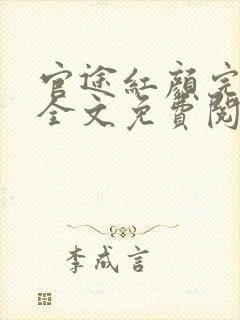 官途紅顏完
全文免費閱
李成言